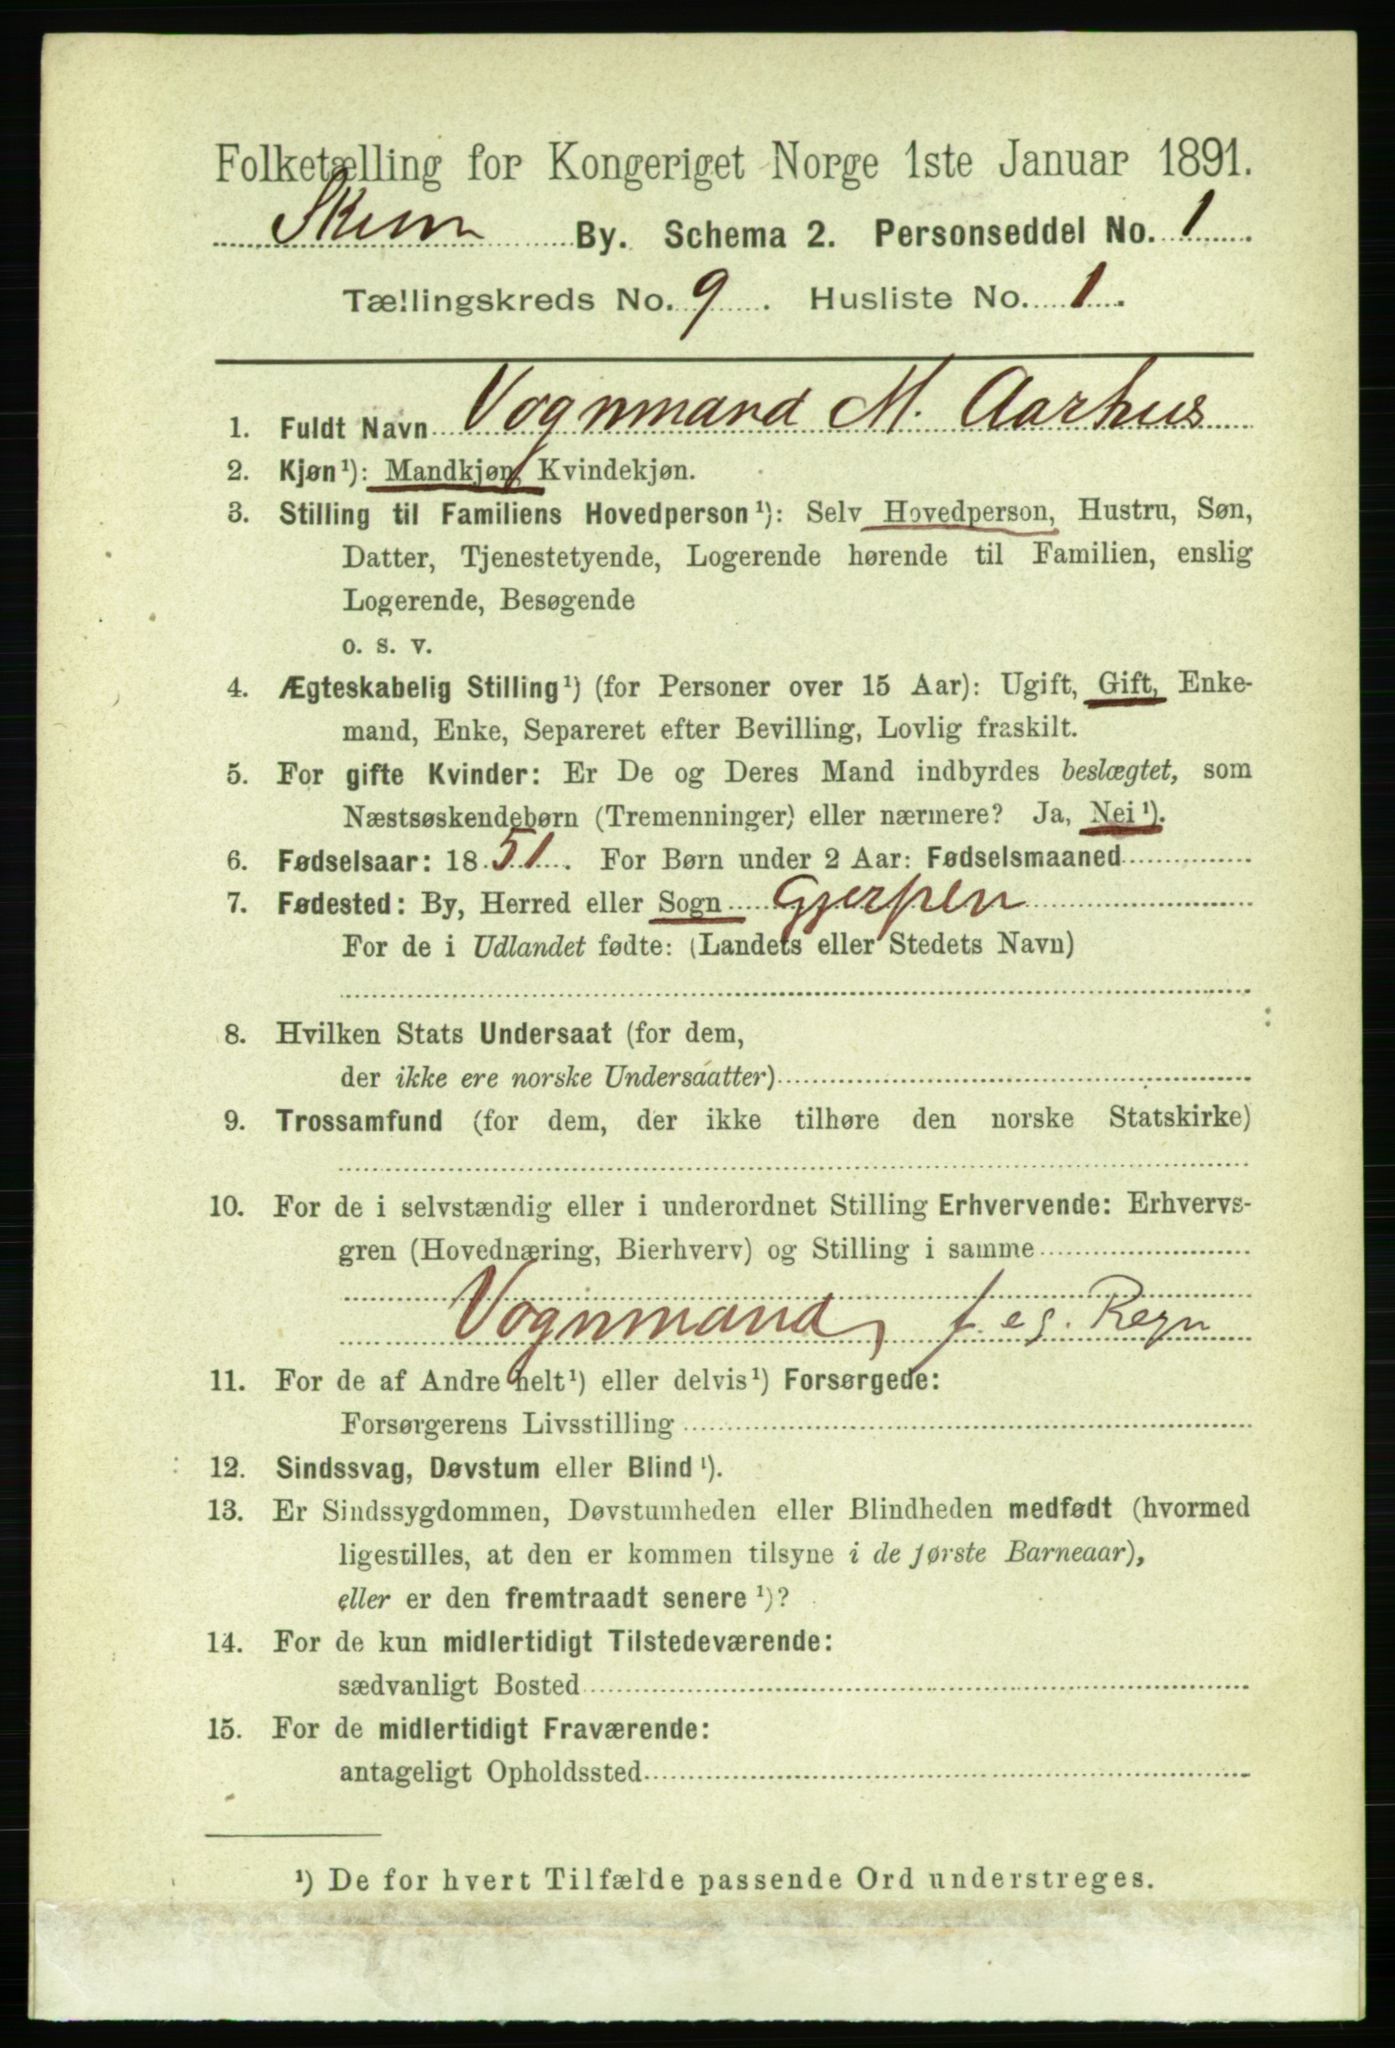 Folketælling for Kongeriget Norge 1ste Januar 1891.
Skien By. Schema 2. Personseddel No. 1
Tællingskreds No. 9. Husliste No. 1.
1. Fuldt Navn Vognmand M. Aarhus
2. Kjøn¹): Mandkjøn, Kvindekjøn.
3. Stilling til Familiens Hovedperson¹): Selv Hovedperson, Hustru, Søn,
Datter, Tjenestetyende, Logerende hørende til Familien, enslig
Logerende, Besøgende
o. s. v.
4. Ægteskabelig Stilling¹) (for Personer over 15 Aar): Ugift, Gift, Enke-
mand, Enke, Separeret efter Bevilling, Lovlig fraskilt.
5. For gifte Kvinder: Er De og Deres Mand indbyrdes beslægtet, som
Næstsøskendebørn (Tremenninger) eller nærmere? Ja, Nei¹).
6. Fødselsaar: 1851. For Børn under 2 Aar: Fødselsmaaned
7. Fødested: By, Herred eller Sogn Gjerpen
For de i Udlandet fødte: (Landets eller Stedets Navn)
8. Hvilken Stats Undersaat (for dem,
der ikke ere norske Undersaatter)
9. Trossamfund (for dem, der ikke tilhøre den norske Statskirke)
10. For de i selvstændig eller i underordnet Stilling Erhvervende: Erhvervs-
gren (Hovednæring, Bierhverv) og Stilling i samme
Vognmand, f. eg. Regn
11. For de af Andre helt¹) eller delvis¹) Forsørgede:
Forsørgerens Livsstilling
12. Sindssvag, Døvstum eller Blind¹).
13. Er Sindssygdommen, Døvstumheden eller Blindheden medfødt (hvormed
ligestilles, at den er kommen tilsyne i de første Barneaar),
eller er den fremtraadt senere¹)?
14. For de kun midlertidigt Tilstedeværende:
sædvanligt Bosted
15. For de midlertidigt Fraværende:
antageligt Opholdssted
¹) De for hvert Tilfælde passende Ord understreges.